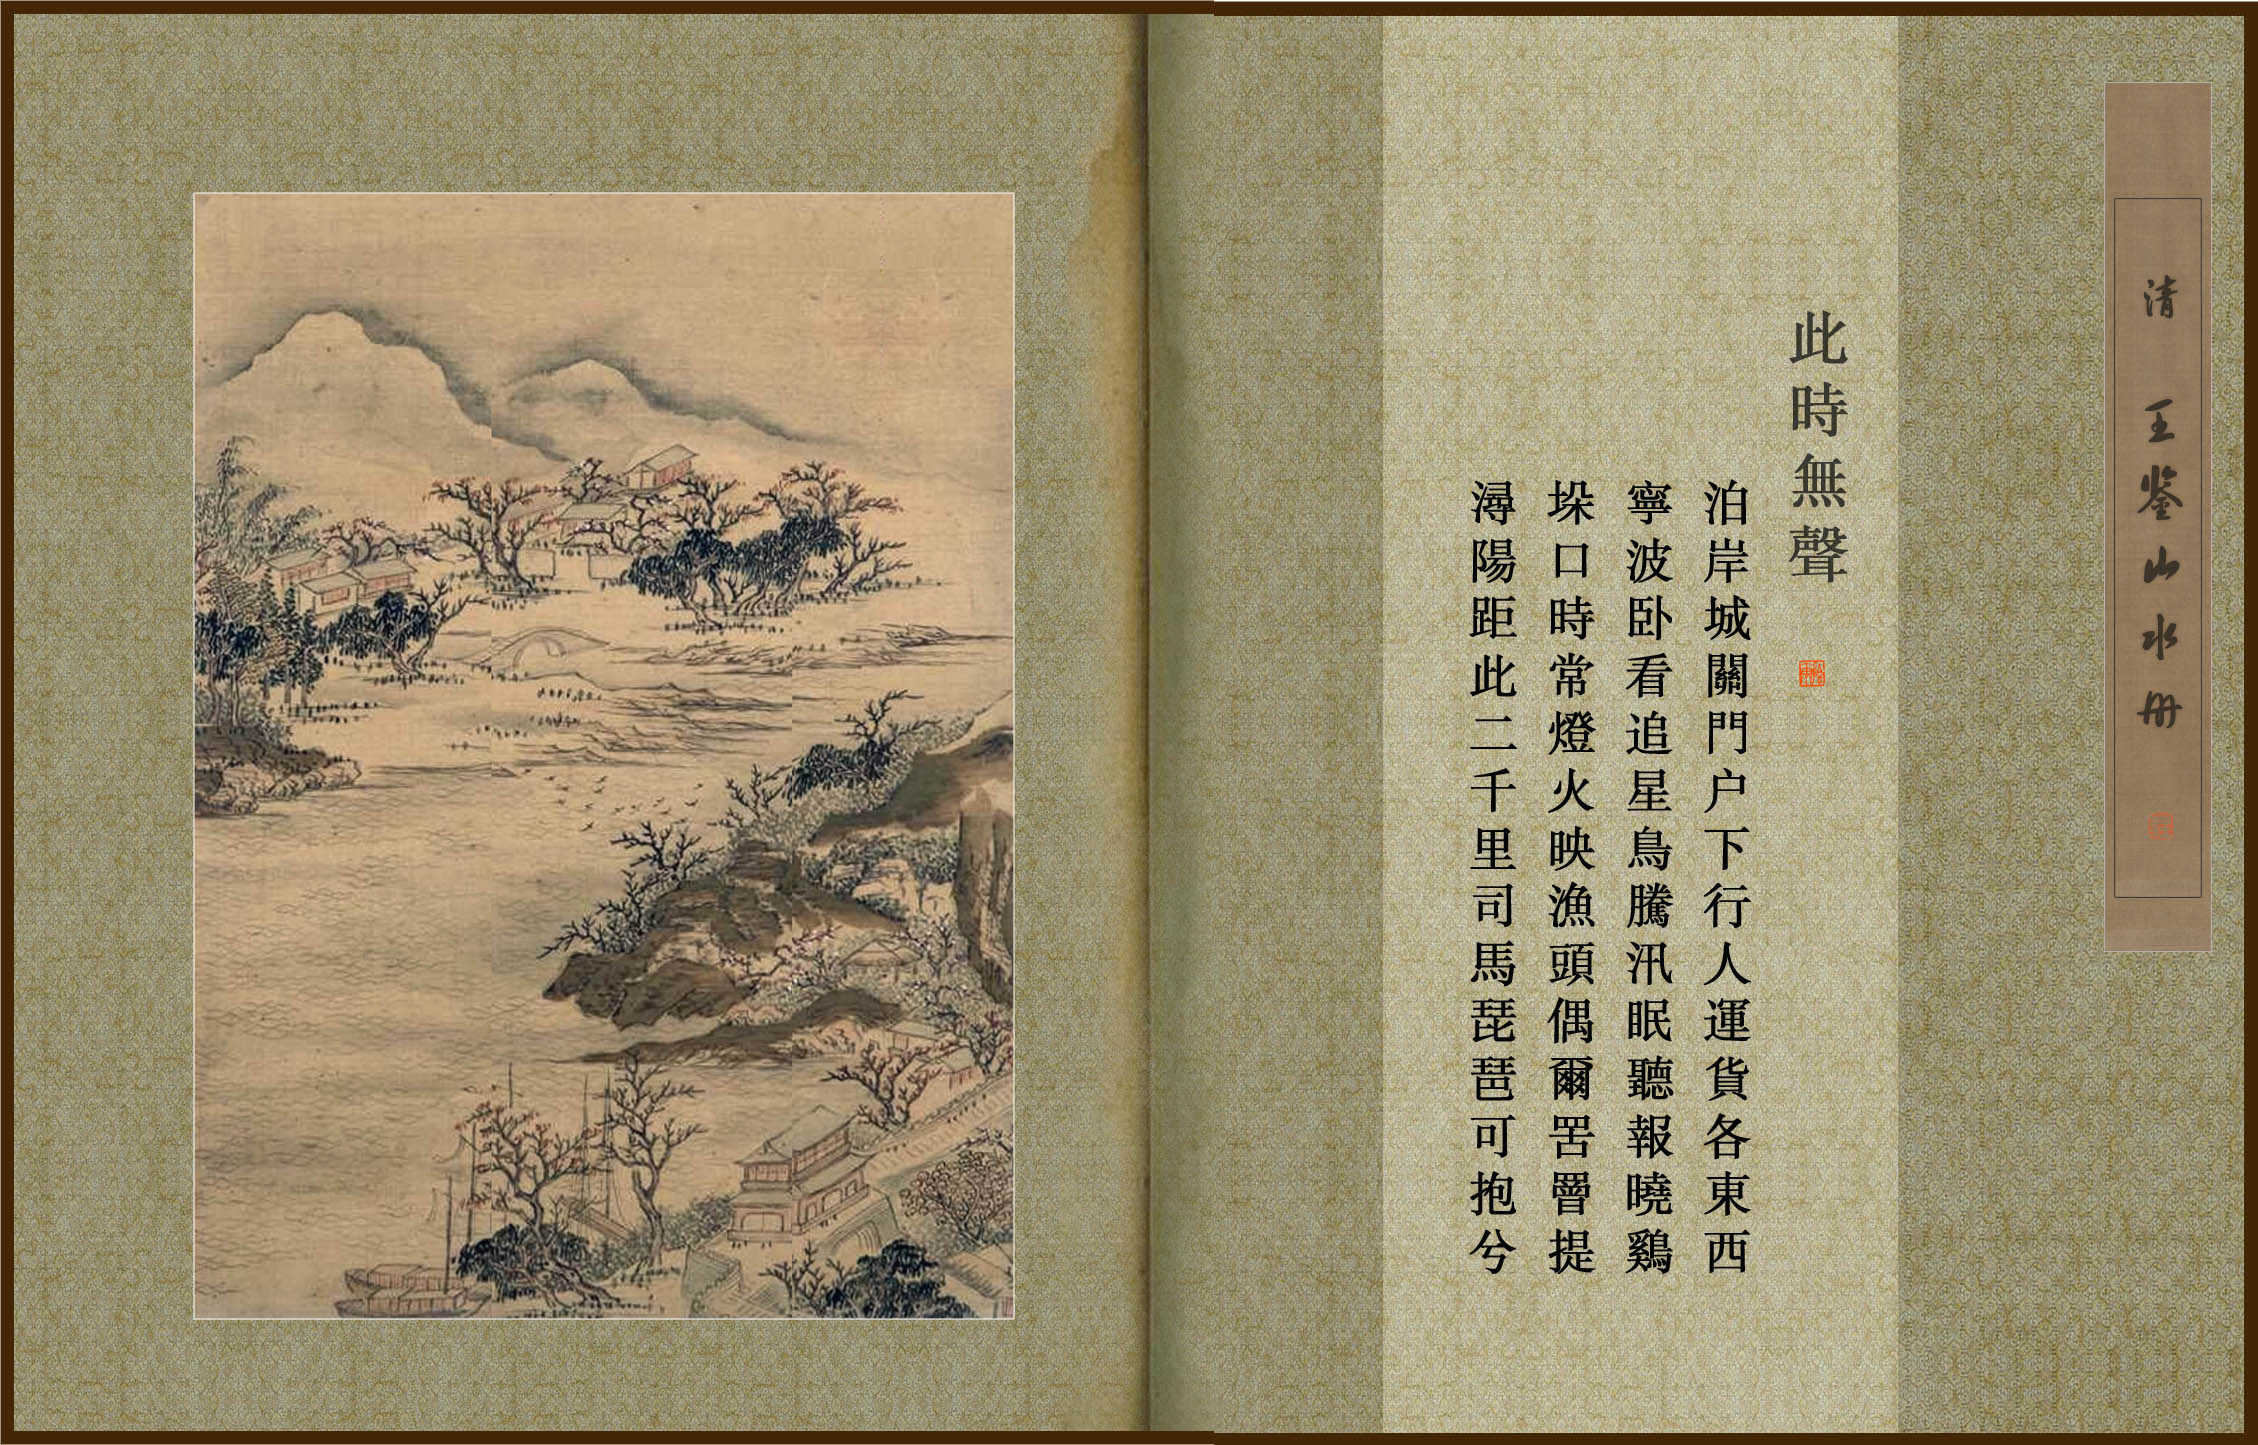 清 王鉴山水册
此時無聲
泊岸城關門户下行人運貨各東西
寧波卧看追星鳥騰汛眠聽報曉鷄
垛口時常燈火映漁頭偶爾罟罾提
潯陽距此二千里司馬琵琶可抱兮